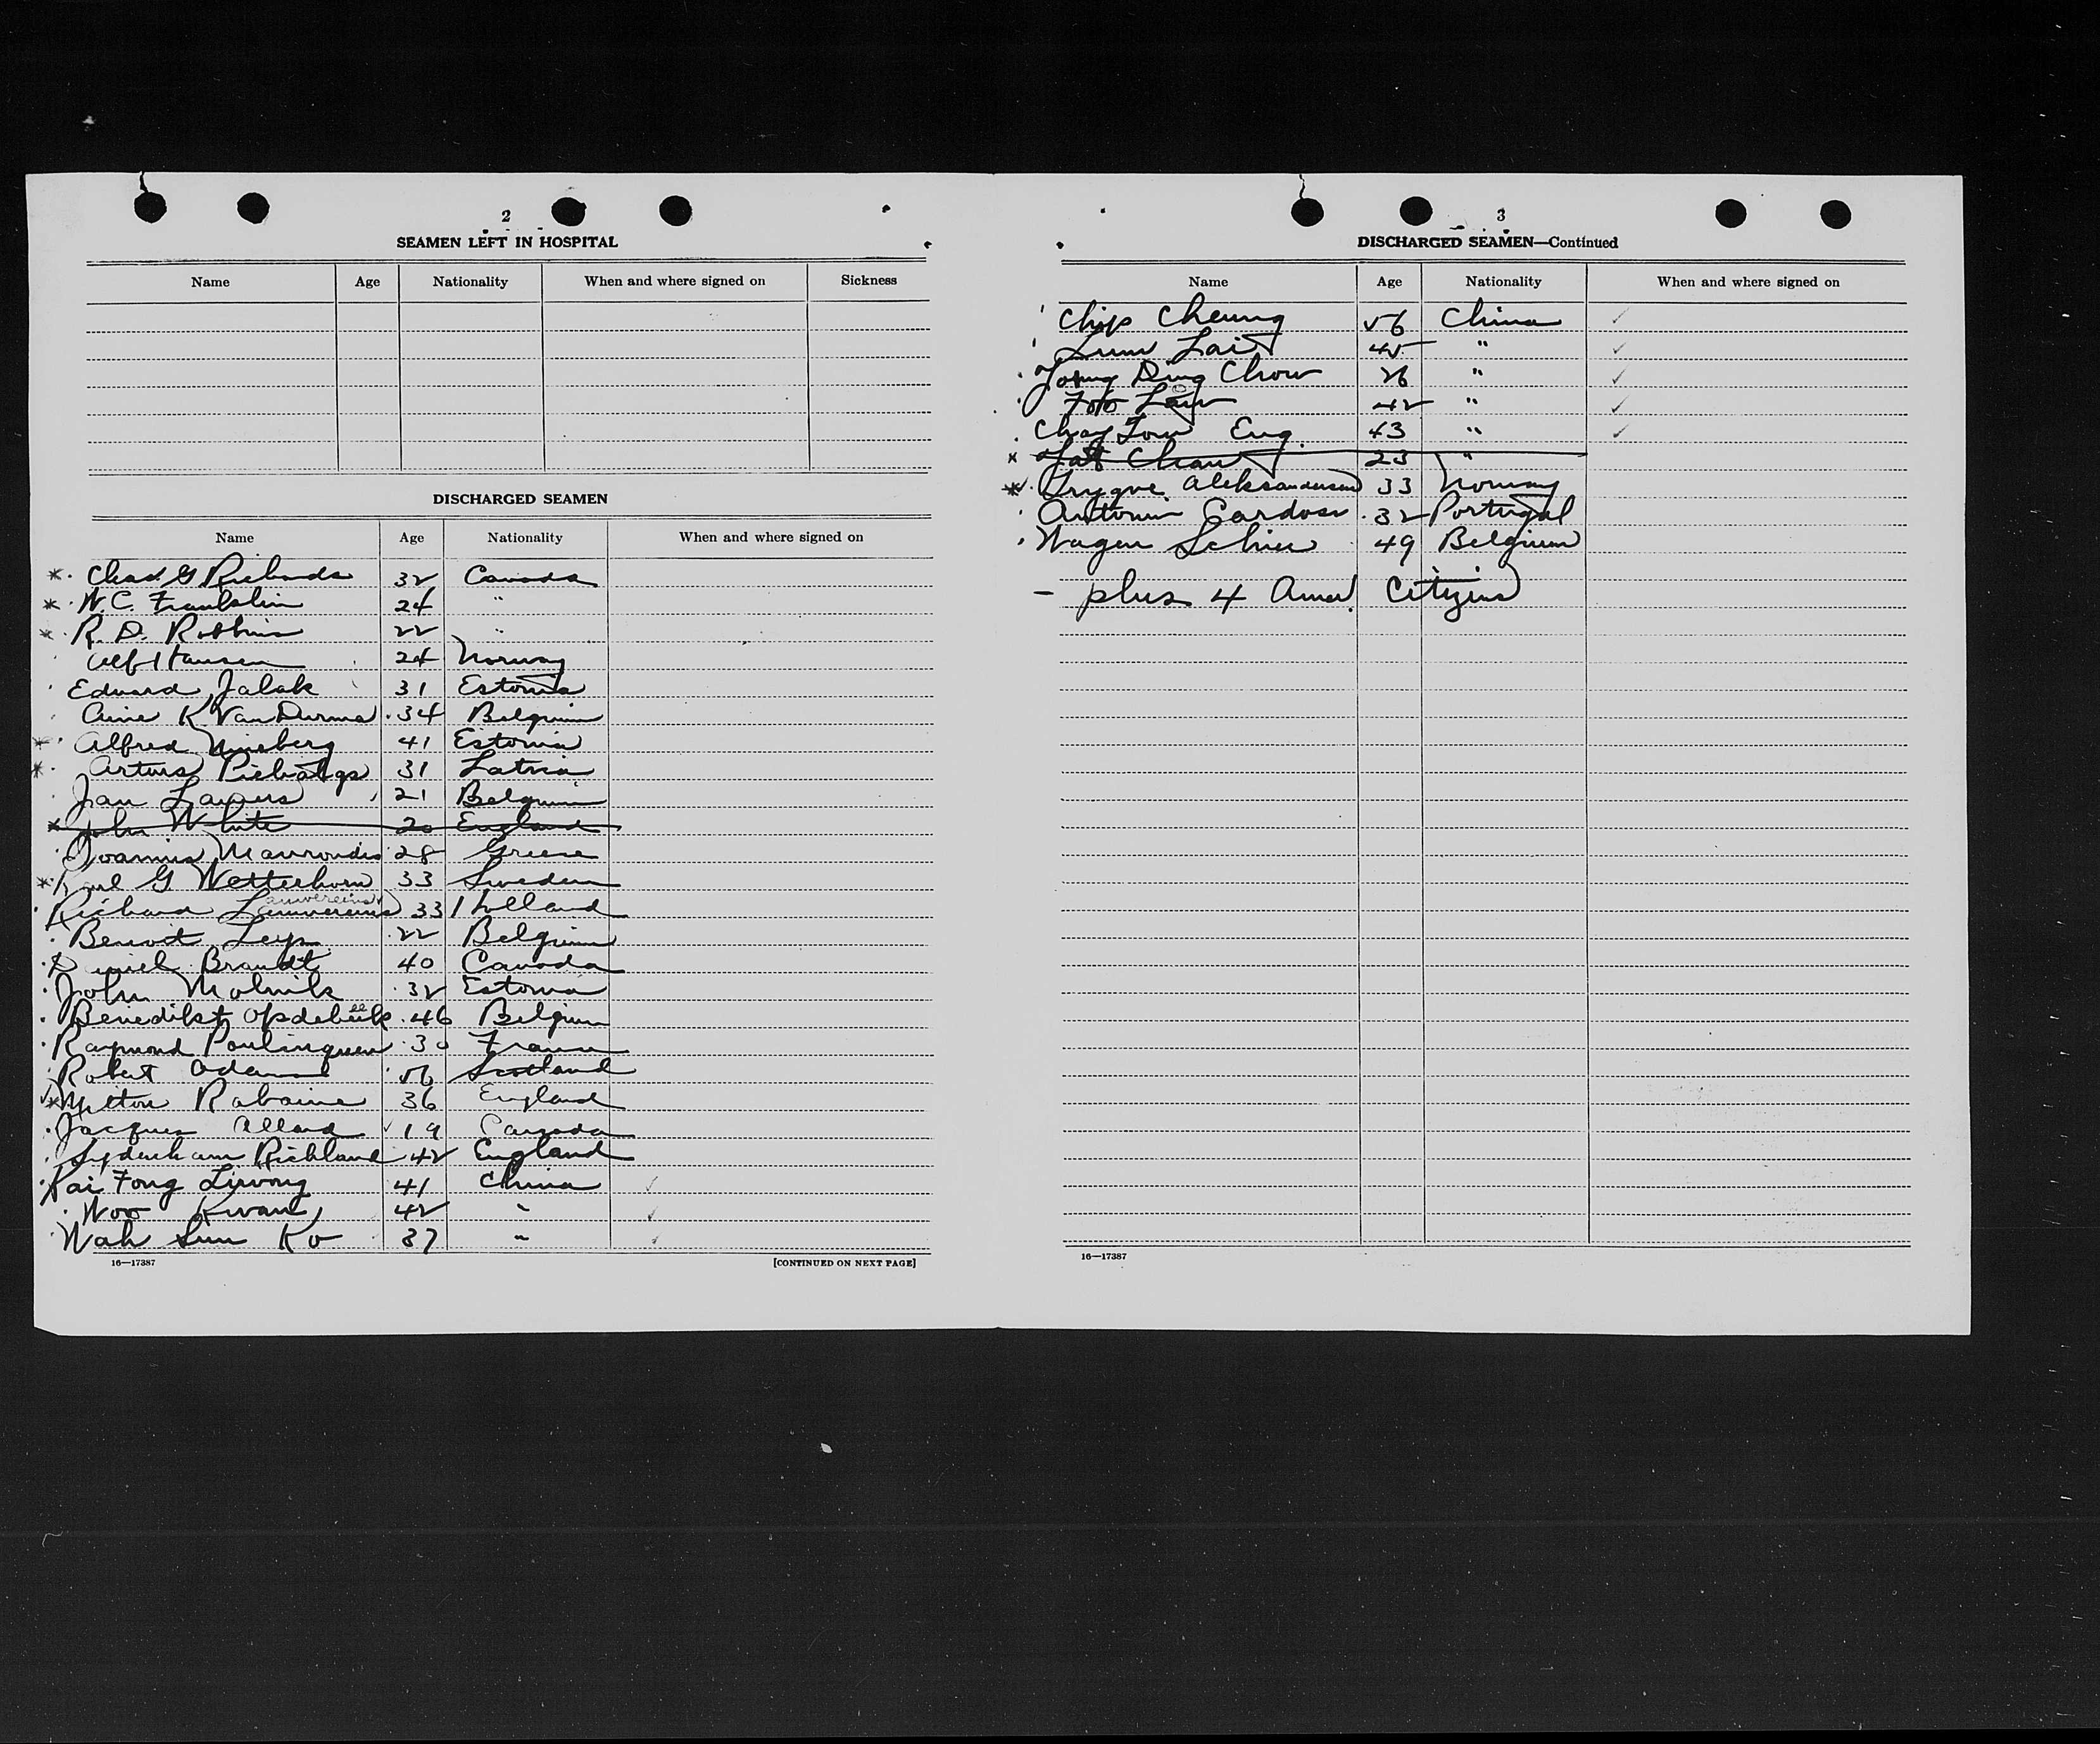 2
SEAMEN LEFT IN HOSPITAL
Name Age Nationality When and where signed on Sickness
DISCHARGED SEAMEN
Name Age Nationality When and where signed on
Chas. G Richards 32 Canada
W. C. Franklin 24 "
R. D. Robbins 22 "
Alf Hansen 24 Norway
Eduard Jalak 31 Estonia
K. Van Durme 34 Belgium
Alfred 41 Estonia
Arturs 31 Latvia
Jan 21 Belgium
John White 20 England
Joannis Mavroudis 28 Greece
G Wetterhorn 33 Sweden
Richard 33 Holland
Benoit Leys 22 Belgium
Daniel Brandt 40 Canada
John Molnik 32 Estonia
Benedikt Opdebeek 46 Belgium
Raymond 30 France
Robert Adams 56 Scotland
Milton Rabaine 36 England
Jacques Allard 19 Canada
Sydenham Richland 42 England
Kai Fong 41 China ✓
Woo Kwan 42 " ✓
Wah Sun Ko 37 " ✓
16—17387 [CONTINUED ON NEXT PAGE]
3
DISCHARGED SEAMEN—Continued
Name Age Nationality When and where signed on
Chip Cheung 56 China ✓
Lum Lai 45 " ✓
Ding Chow 26 " ✓
Foo 42 " ✓
Chay Tow Eng. 43 " ✓
Chan 23 "
Trygve Aleksandersen 33 Norway
Antonin Cardoso 32 Portugal
Wagen 49 Belgium
- plus 4 Amer. Citizens
16—17387